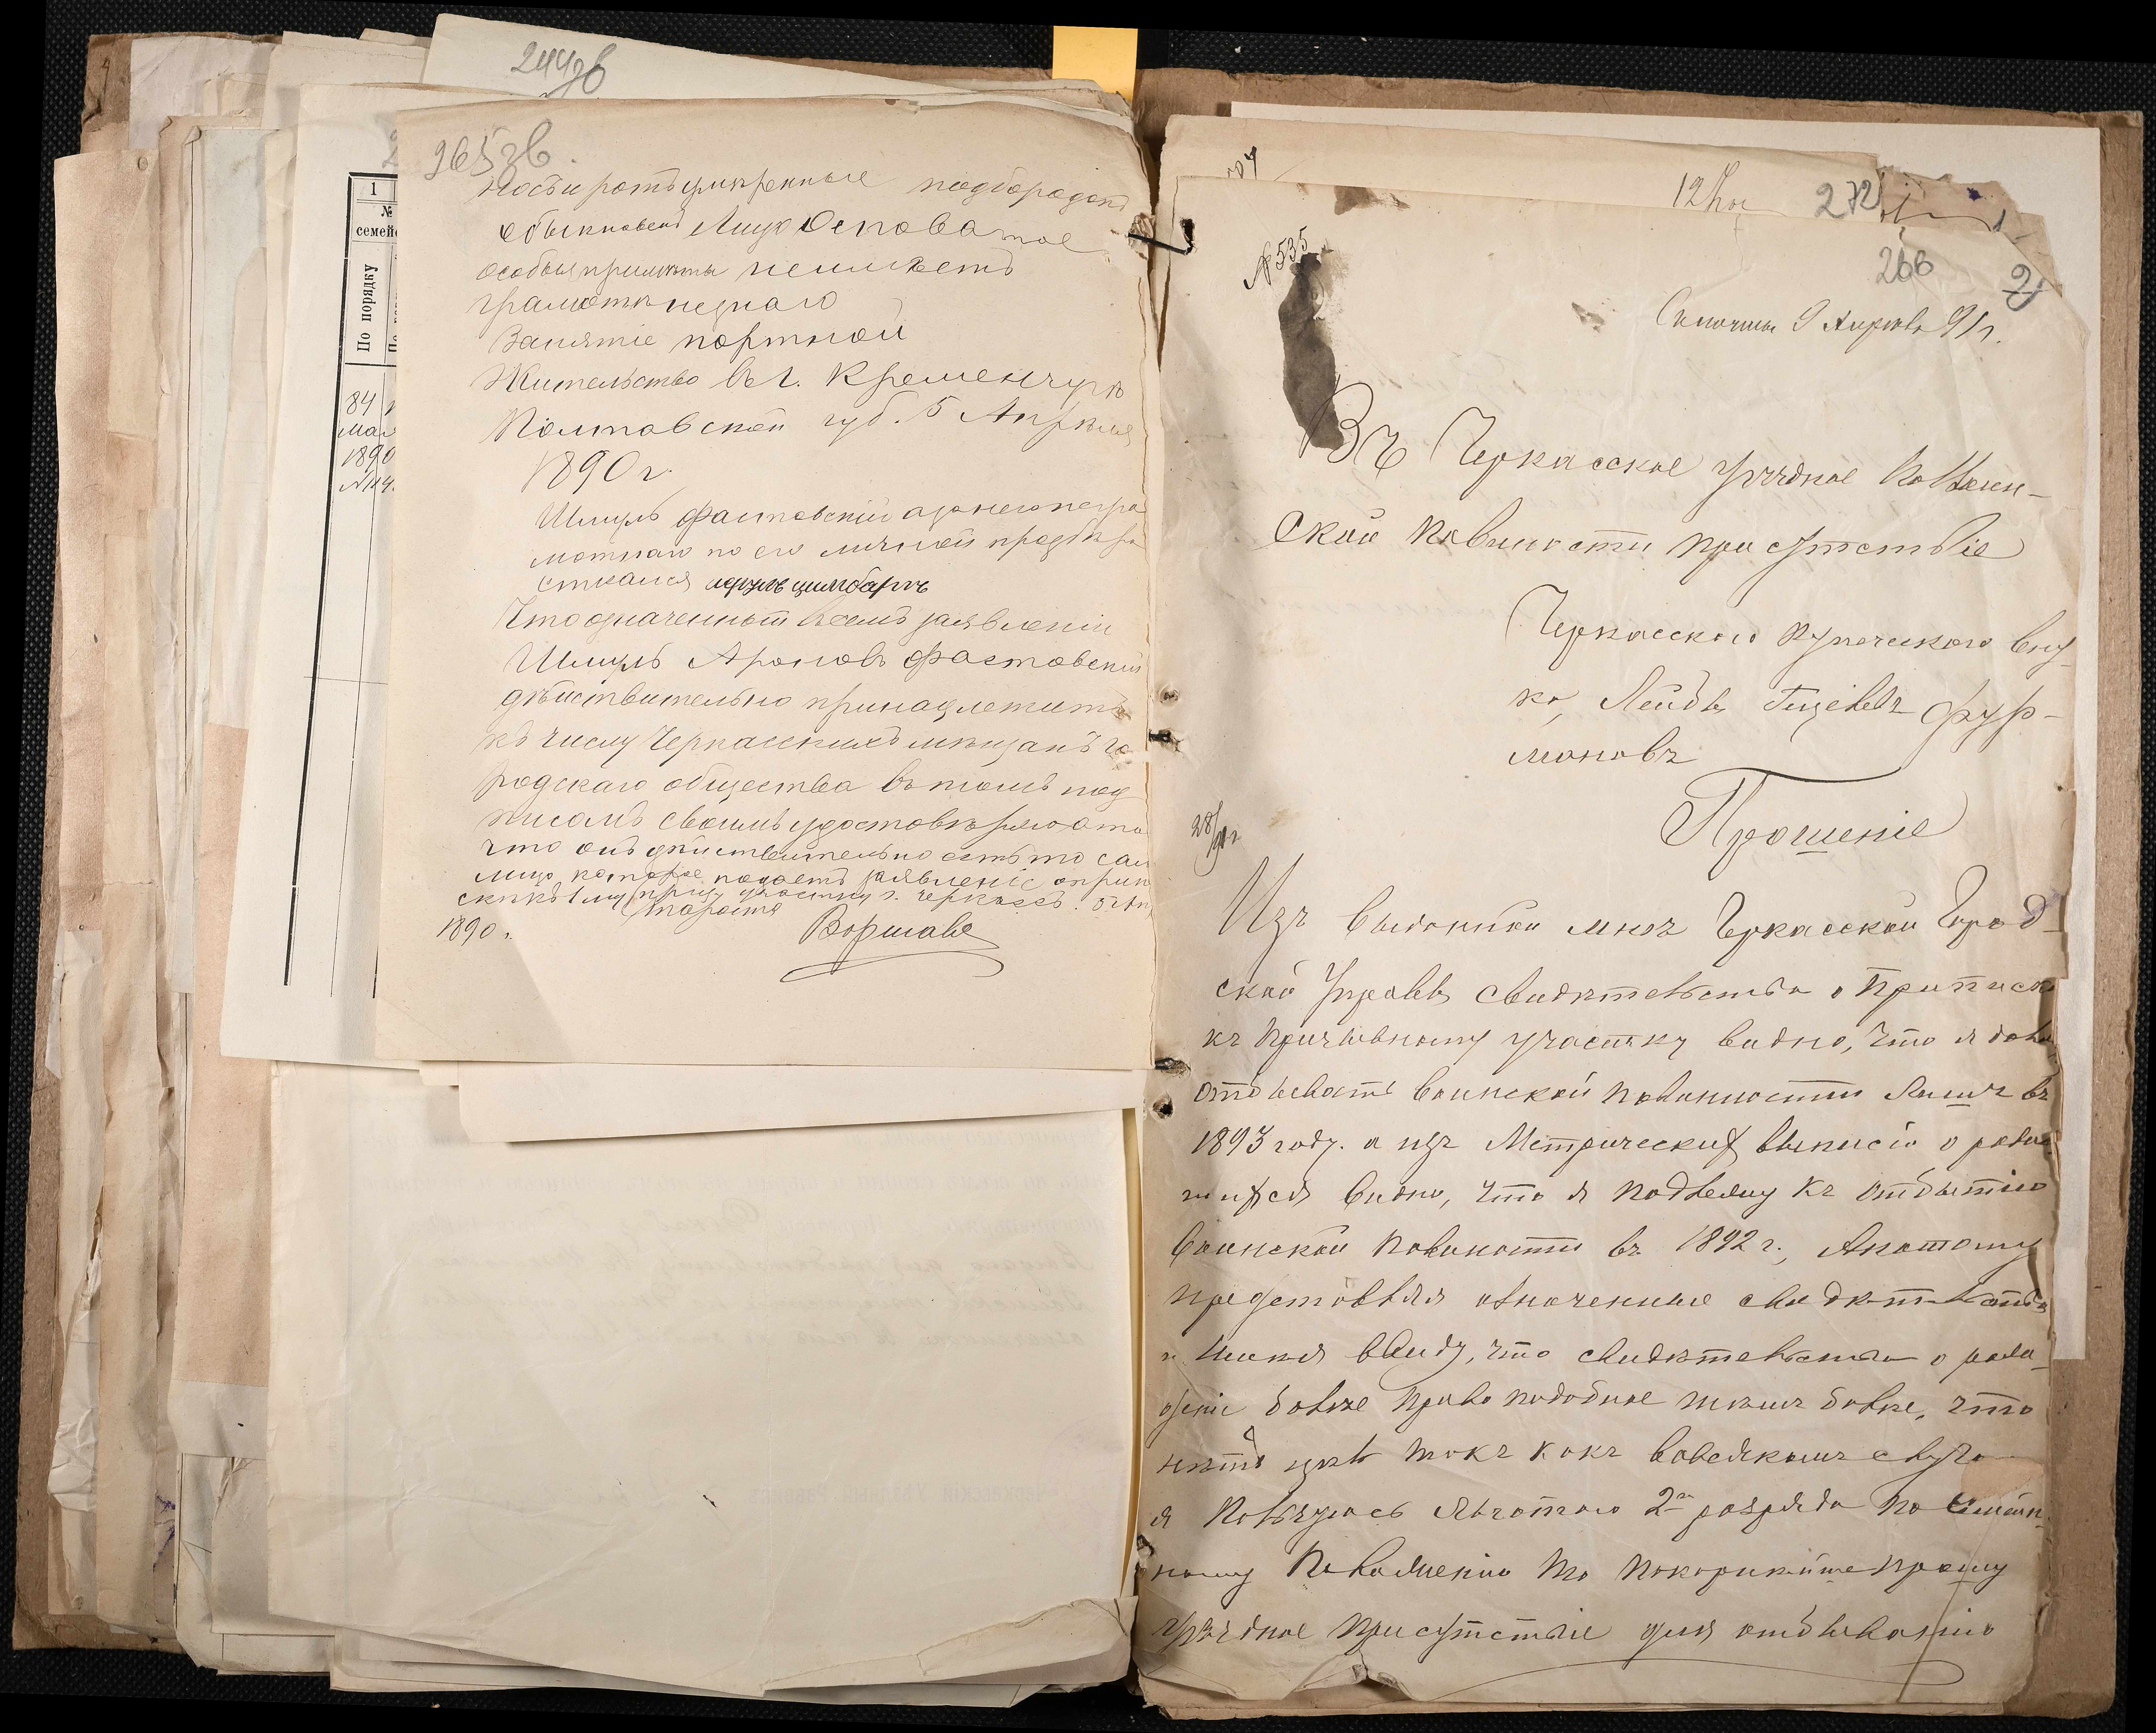 244 зв
265 зв.
1
№
семей
По порядку
84
мая
1890
носъ и ротъ умѣренные подбородокъ
обыкновен Лицо Осповатое
особыя примѣты неимѣетъ
грамоты незнаю
Занятіе портной
Жительство въ г. Кременчукѣ
Полтавской губ. 5 Апрѣля
1890 г.
Шмуль Фастовскій а за него негра
мотнаго по его личной прозбѣ ра
списался
Что означенный всемъ заявленіи
Шмуль Ароновъ Фастовскій
дѣйствительно принадлежитъ
къ числу Черкасскихъ мѣщанъ го
родскаго общества въ томъ под
писомъ своимъ удостовѣряю а то
что онъ дѣйствительно есть то сам
лицо которое подаетъ заявленіе о при
скѣ къ 1 му приз участку г. Черкассъ. 5 Ап
Староста
1890 г.
Воршавс
12
272
№ 535
266
2
9 Апрѣля 91 г.
Въ Черкасское уѣздное по Воин-
ской повиности присутствіе
Черкасского купеческого вну-
ка, Лейбы Фур-
мановъ
Прошеніе
28/
Изъ выданной мнѣ Черкасской Город-
ской Управы свидѣтельства о приписк
къ призывному участку видно, что я долж
отбывать воинской повинности лишъ въ
1893 году. а изъ Метрический выписіо о родив
шихся видно, что я подлежу къ отбытію
воинской повиности въ 1892 г., Апотому
представляя означенные свидѣтельства
и имѣя ввиду, что свидѣтельство о рож-
деніе болѣе правоподобное тѣмъ болѣе, что
нѣтъ цѣль такъ какъ вовсякомъ случа
я пользуюсь льготою 2го розряда по семѣй
ному положенію то покорнѣйше прошу
уѣздное присутствіе для отбыванію